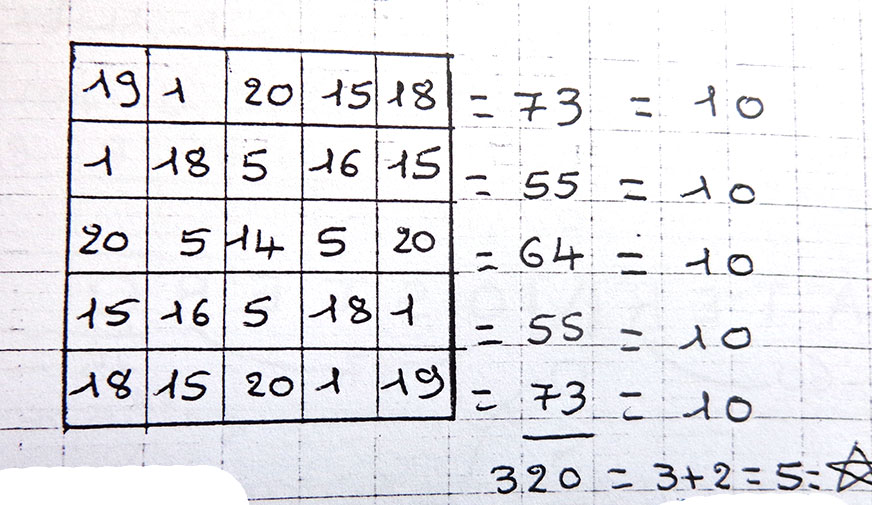 19 1 20 15 18 = 73 = 10
1 18 5 16 15 = 55 = 10
20 5 14 5 20 = 64 = 10
15 16 5 18 1 = 55 = 10
18 15 20 1 19 = 73 = 10
320 = 3+2 = 5 =